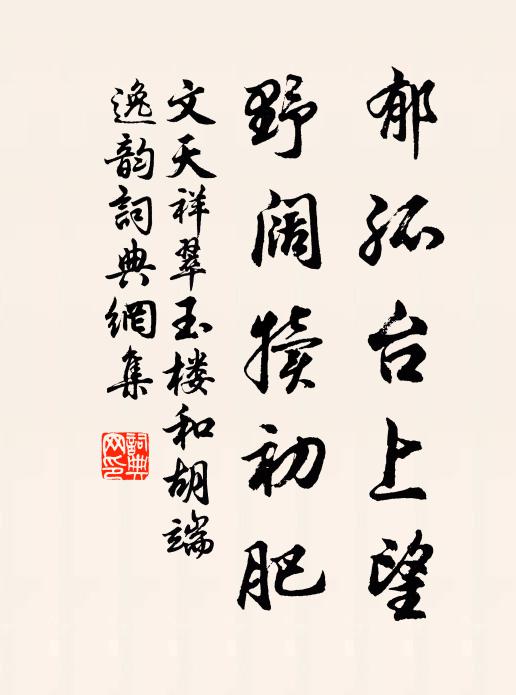 郁孤台上望
野阔犊初肥
文天祥翠玉楼和胡端
逸韵詞典網集
詞典网印